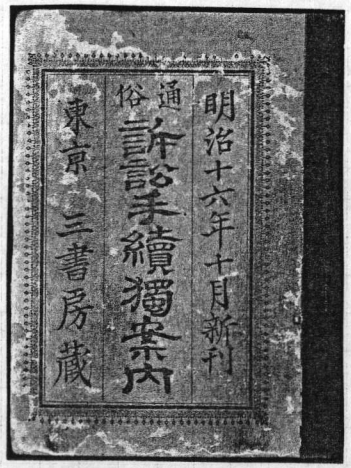 明治十六年十月新刊
通俗
訴訟手續獨案內
東京 三書房藏